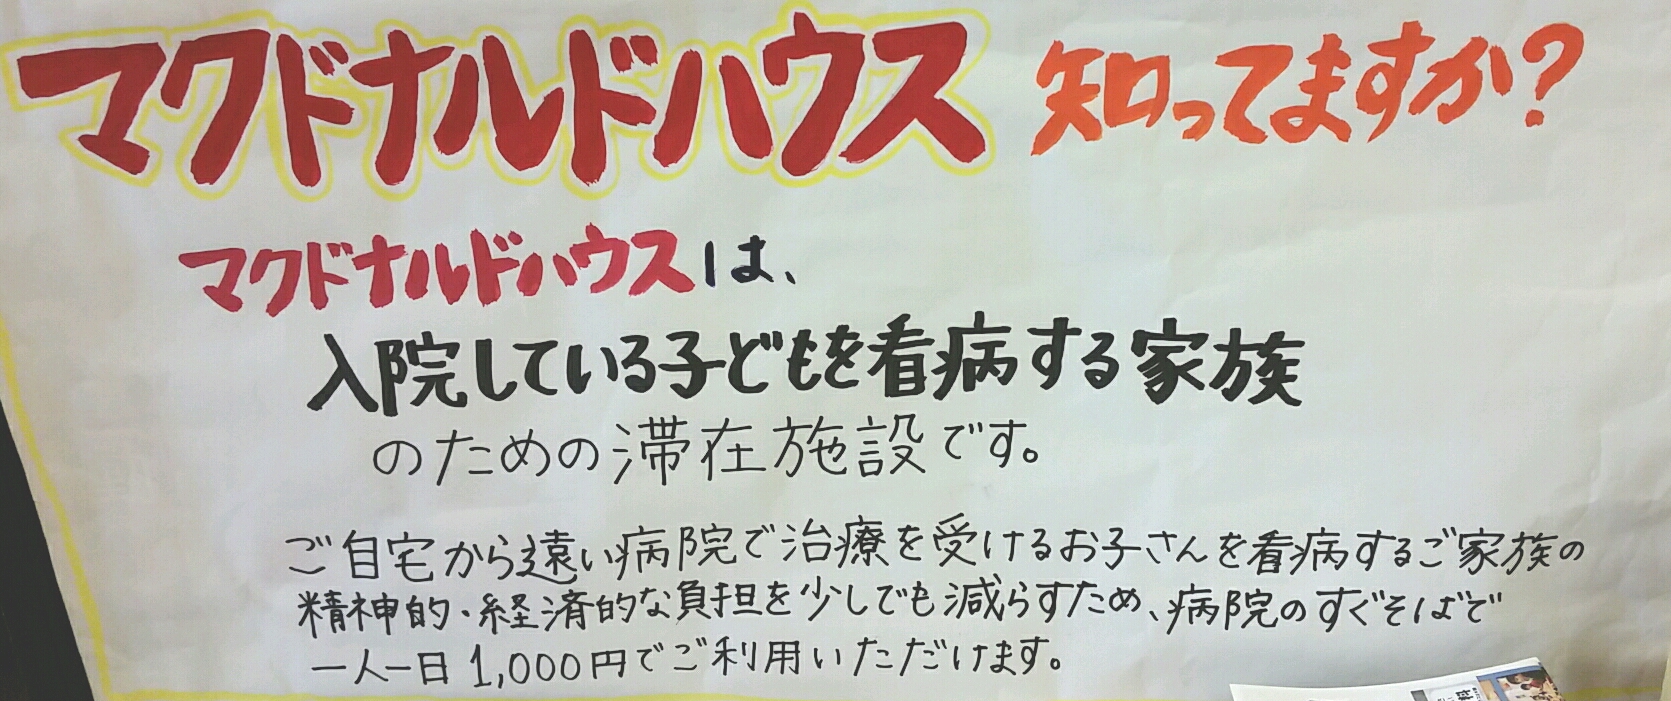 マクドナルドハウス 知ってますか?
マクドナルドハウスは、
入院している子どもを看病する家族
のための滞在施設です。
ご自宅から遠い病院で治療を受けるお子さんを看病するご家族の
精神的・経済的な負担を少しでも減らすため、病院のすぐそばで
一人一日 1,000円でご利用いただけます。